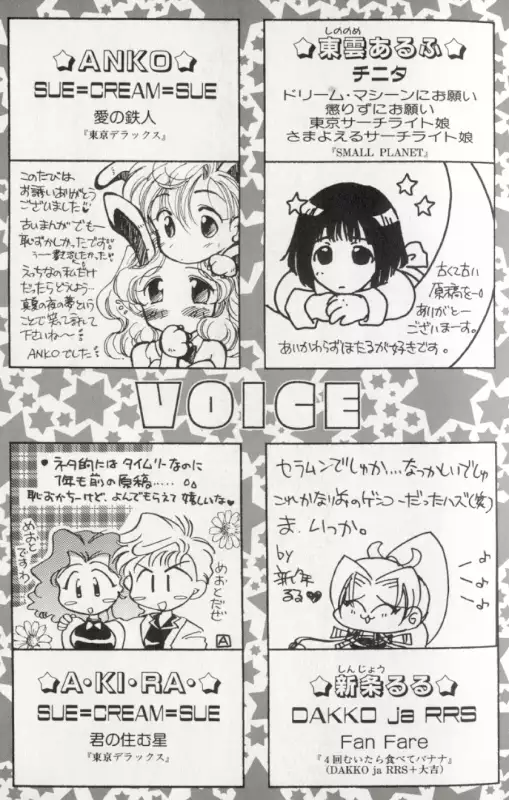 ☆ANKO☆
SUE=CREAM=SUE
愛の鉄人
『東京デラックス』
このたびは
お誘いありがとう
ございました♥
古いまんがでも〜
恥ずかしか、たです。
えっちな私だけ
だったらどうしよう…
真夏の夜の夢という
ことで笑って許して
下さいね〜
ANKOでした
しののめ
☆東雲あるふ☆
チニタ
ドリーム・マシーンにお願い
懲りずにお願い
東京サーチライト娘
さまよえるサーチライト娘
『SMALL PLANET』
古くて古い
原稿を…
ありがと〜
ございまーす。
あいかわらずほたるが好きです。
VOICE
・ネタ的にはタイムリーなのに
1年も前の原稿.....
恥ずかちーけど、よんでもらえて嬉しいな♥
めおと
ですわ
めおとだぜ
A
☆A・KI・RA・☆
SUE=CREAM=SUE
君の住む星
『東京デラックス』
セラムンでしゅか...なつかしいでしゅ
これかなり前のゲンコーだったハズ(笑)
ま、いっか。
by
新条
るる♥
しんじょう
☆新条るる☆
DAKKO ja RRS
Fan Fare
『４回むいたら食べてバナナ』
(DAKKO ja RRS＋大吉)